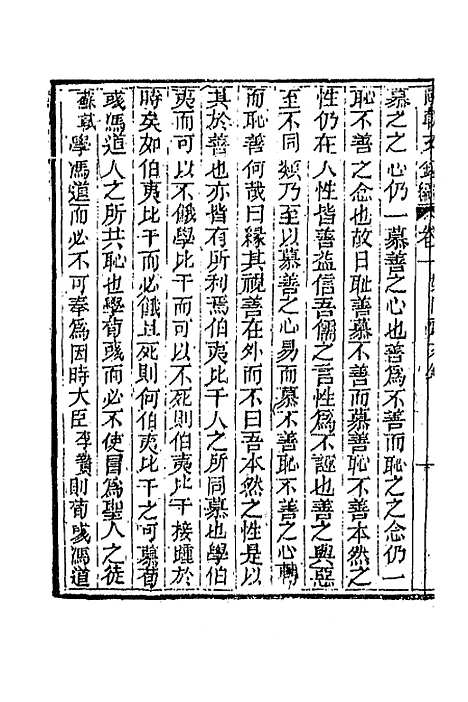 慕之之心仍一慕善之心也善爲不善而恥之之念仍一
恥不善之念也故曰恥善慕不善而慕善恥不善本然之
性仍在人性皆善益信吾儒之言性爲不誣也善之與惡
至不同類乃至以慕善之心易而慕不善恥不善之心轉
而恥善何哉曰緣其視善在外而不曰吾本然之性是以
其於善也亦皆有所利焉伯夷比干人之所同慕也學伯
夷而可以不餓學比干而可以不死則伯夷比干接踵於
時矣如伯夷比干而必餓且死則何伯夷比干之可慕荀
彧馮道人之所共恥也學荀彧而必不使冒爲聖人之徒
蘇軾學馮道而必不可奉爲因時大臣李贄則荀彧馮道
卷一